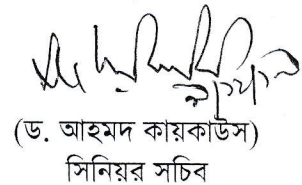 (ড. আহমদ কায়কাউস)
সিনিয়র সচিব